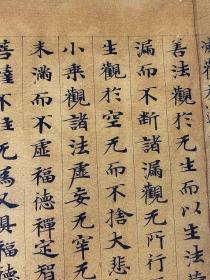 善法觀於无生而以生法
漏而不断諸漏觀无所行
生觀於空无而不捨大悲
小乘觀諸法虛妄无牢无
未滿而不虛福德禪定智
不住无為又具福德